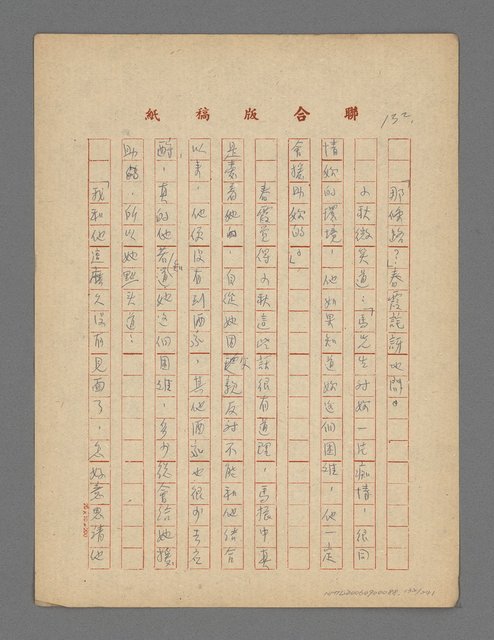 紙稿版合聯
132.
「那條路？」春霞詫訝地問。
小秋微笑道：「馬先生對妳一片痴情，很同
情妳的環境，他如果知道妳這個困難，他一定
會援助妳的」。
春霞覺得小秋這些話很有道理，馬振中真
是素着她的，自從她因父親反對不能和他結合
以來，他便沒有到酒家，其他酒家也很少去
酌，真的他若知道她這個困難，多少總會給她援
助的，所以她點头道：
「我和他這麼久沒有見面了，怎好意思請他
NMTL20060900088 132/241